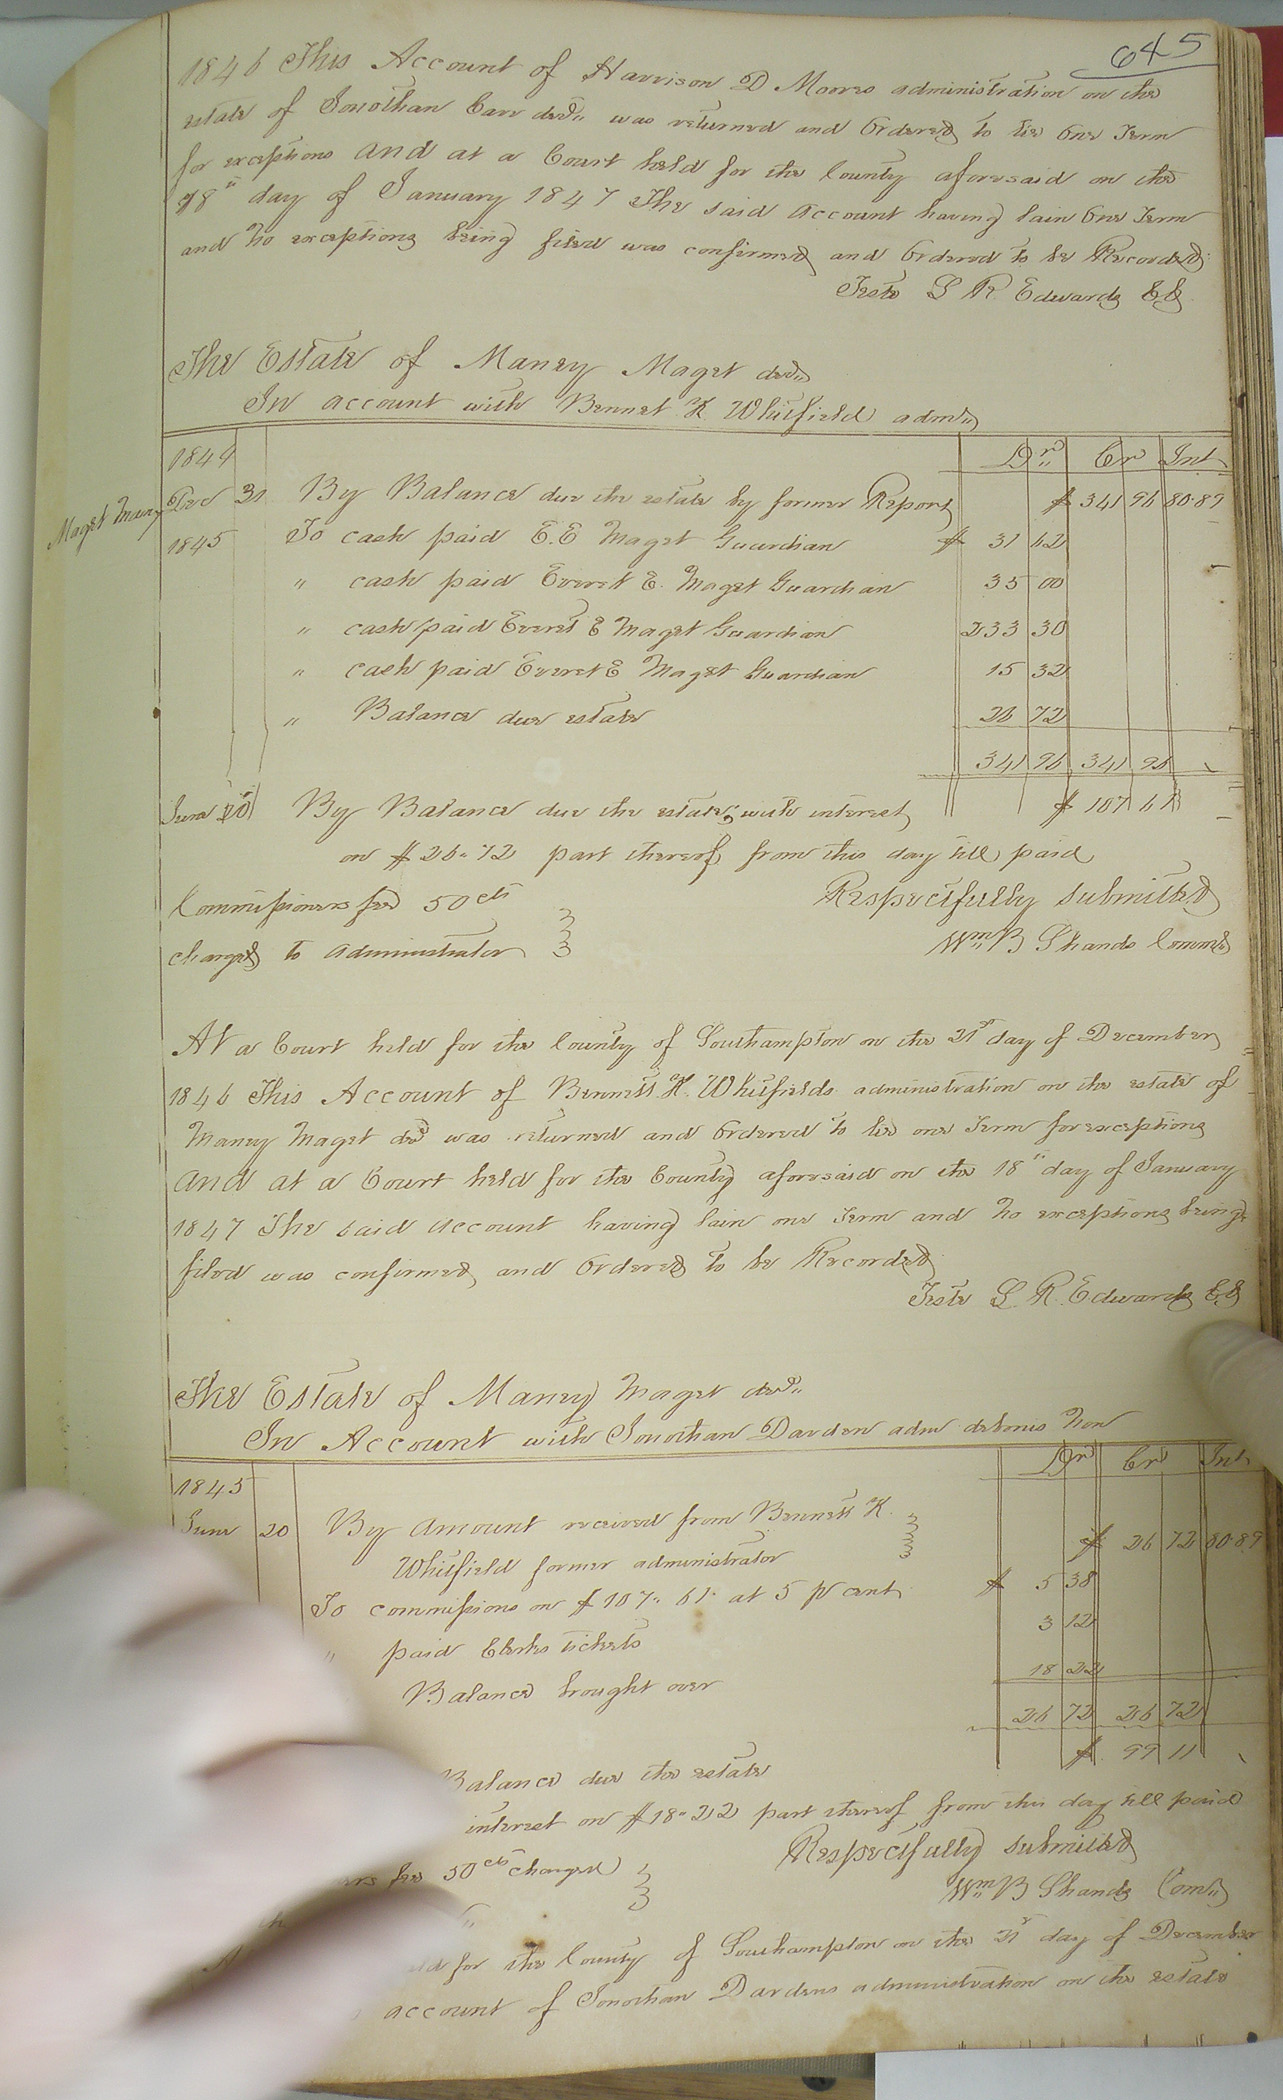 645
1846 This Account of Harrison D Moores administration on the
estate of Jonothan Carr decd was returned and Ordered to lie One Term
for exceptions And at a Court held for the County aforesaid on the
18th day of January 1847 The said Account having lain One Term
and No exceptions being filed was confirmed and Ordered to be Recorded
Teste L R Edwards
The Estate of Maney Maget decd
In account with Bennet K Whitfield admr
1844 Dr Cr Int
Maget Maney
Dec 31 By Balance due the estate by former Report $ 341 96 80.89
1845 To cash paid E. E Maget Guardian $ 31 62
" cash paid Everet E. Maget Guardian 35 00
" cash paid Everet E Maget Guardian 233 30
" cash paid Everet E Maget Guardian 15 32
" Balance due estate 26 72
341 96 341 96
June 20 By Balance due the estate with interest $ 107 61
on $26.72 part thereof from this day till paid
Commissioners fee 50 cts Respectfully submitted
charged to Administrator Wm B Shands Commr
At a Court held for the County of Southampton on the 21st day of December
1846 This Account of Bennett K. Whitfields administration on the estate of
Maney Maget decd was returned and Ordered to lie one Term for exceptions
And at a Court held for the County aforesaid on the 18th day of January
1847 The said Account having lain one Term and No exceptions being
filed was confirmed and Ordered to be Recorded
Teste L. R. Edwards
The Estate of Maney Maget decd
In Account with Jonothan Darden adm debonis Non
1845 Dr Cr Int
June 20 By Amount received from Bennett K.
Whitfield former administrator $ 26 72 80.89
To commissions on $107.61 at 5 pr cent $ 5 38
" paid Clerks tickets 3 12
Balance brought over 18 22
26 72 26 72
Balance due the estate $ 99 11
interest on $18.22 part thereof from this day till paid
Respectfully submitted
fee 50 cts charged Wm B Shands Comr
for the County of Southampton on the 21st day of December
account of Jonothan Dardens administration on the estate